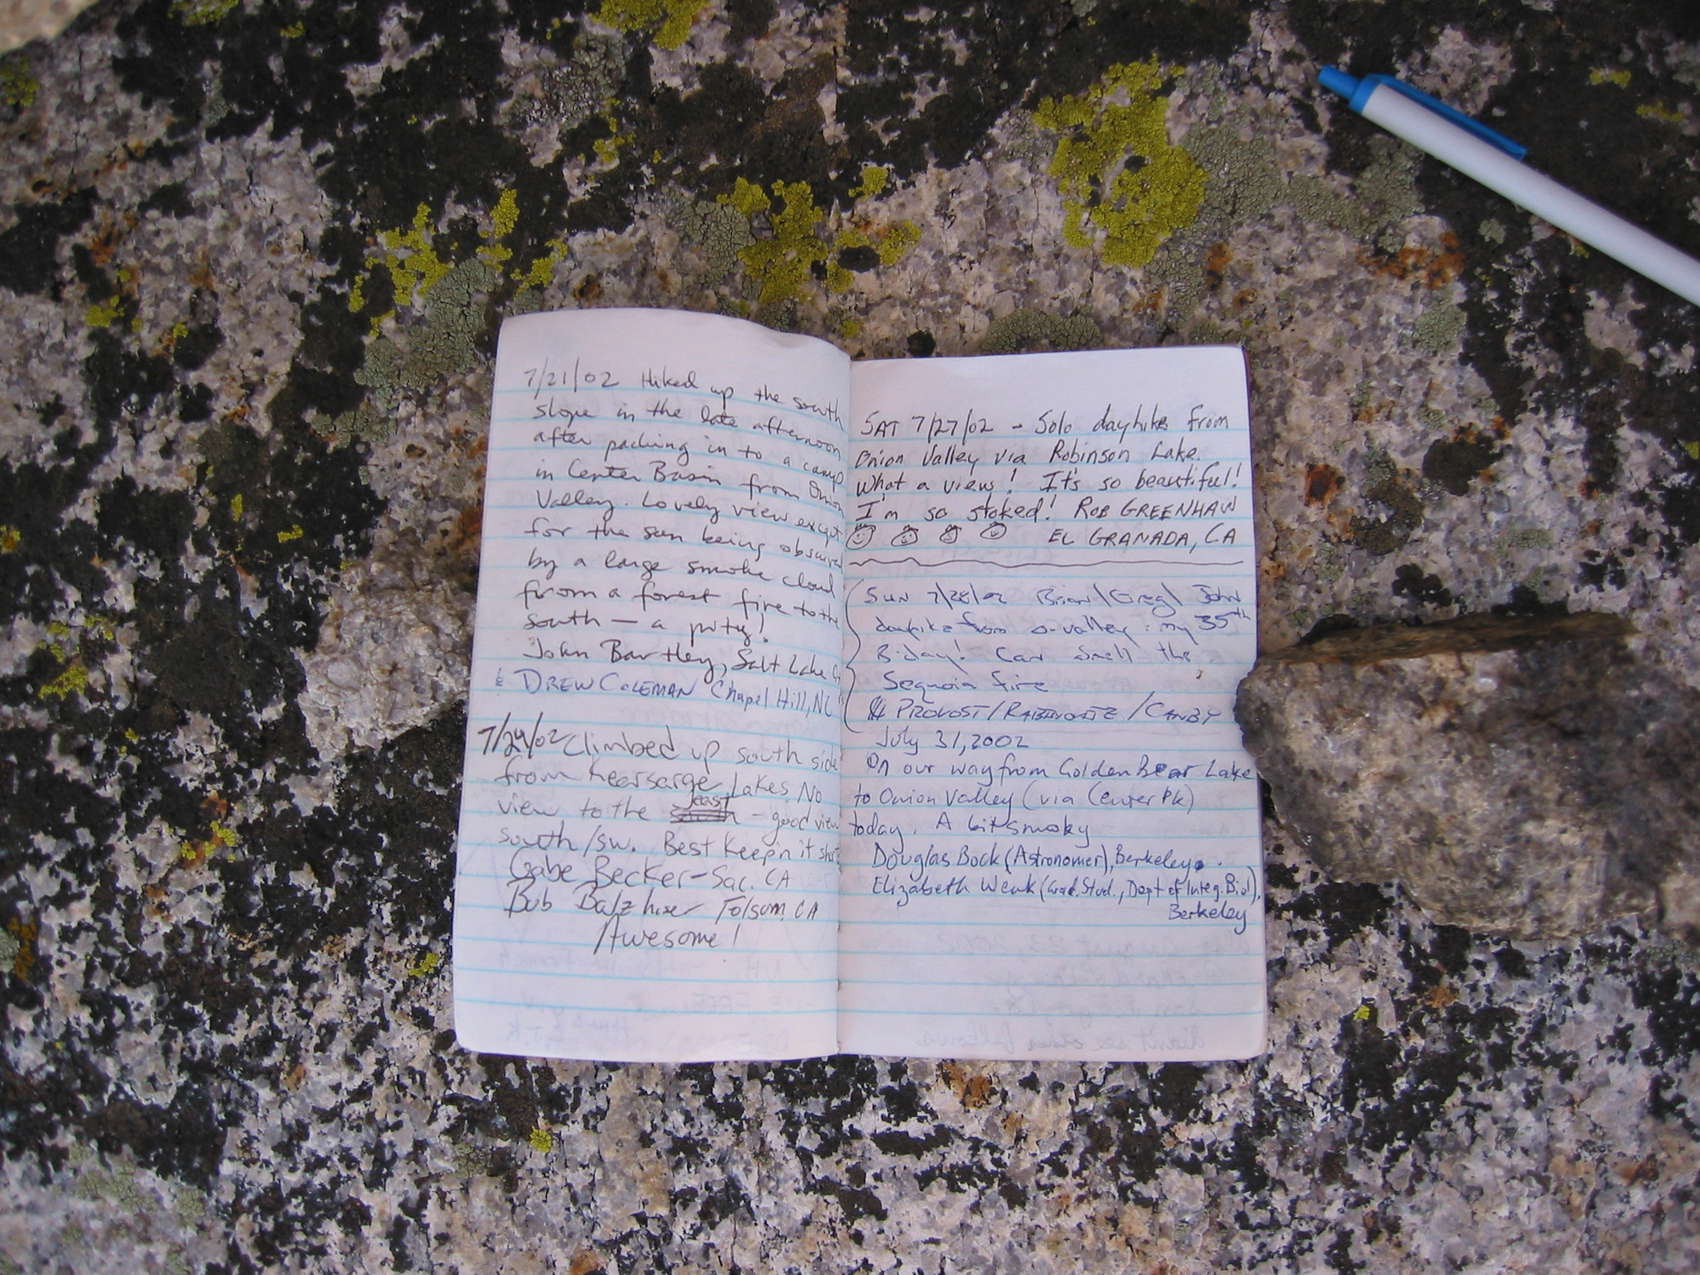 7/21/02 Hiked up the south
slope in the late afternoon
after packing in to a camp
in Center Basin from Onion
Valley. Lovely view except
for the sun being obscured
by a large smoke cloud
from a forest fire to the
south — a pity!
John Bartley, Salt Lake
& DREW COLEMAN Chapel Hill, NC
7/24/02 Climbed up south side
from Kearsarge Lakes. No
view to the east - good view
south/sw. Best Keep'n it
Gabe Becker - Sac. CA
Bob Folsom, CA
Awesome!
SAT 7/27/02 - Solo dayhike from
Onion Valley via Robinson Lake.
What a view! It's so beautiful!
I'm so stoked! ROB GREENHAW
EL GRANADA, CA
SUN 7/28/02 Brian/Greg/John
dayhike from o-valley. my 35th
B-day! Can smell the
Sequoia fire
PROVOST / / CANBY
July 31, 2002
On our way from Golden Bear Lake
to Onion Valley (via Center Pk)
today. A bit smoky
Douglas Bock (Astronomer), Berkeley.
Elizabeth Wenk (Grad. Stud., Dept of Integ. Biol),
Berkeley